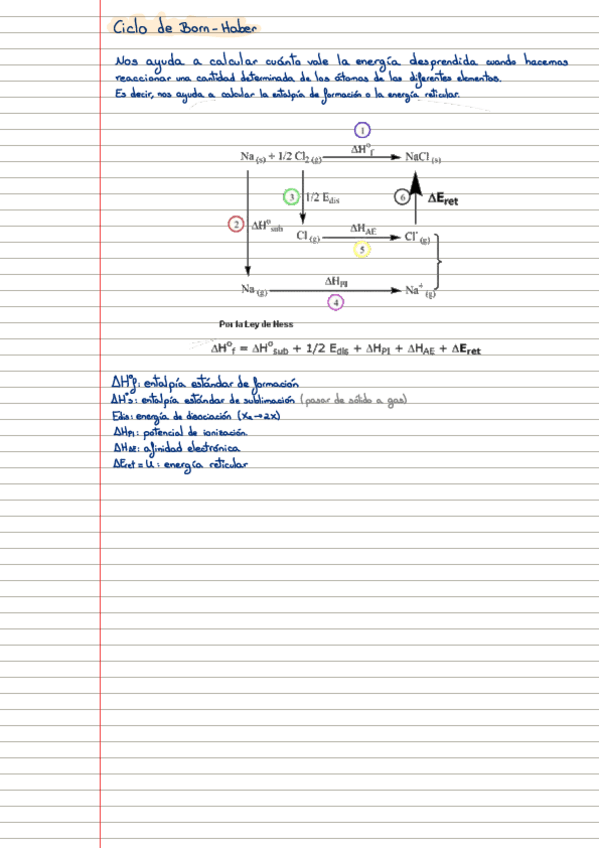 Ciclo de Born-Haber
Nos ayuda a calcular cuánto vale la energía desprendida cuando hacemos
reaccionar una cantidad determinada de los átomos de los diferentes elementos.
Es decir, nos ayuda a calcular la entalpía de formación o la energía reticular.
1
Na (s) + 1/2 Cl2 (g) ΔH°f NaCl (s)
3 1/2 Edis 6 ΔEret
2 ΔH°sub Cl (g) ΔHAE Cl- (g)
5
Na (g) ΔHPI Na+ (g)
4
Por la Ley de Hess
ΔH°f = ΔH°sub + 1/2 Edis + ΔHPI + ΔHAE + ΔEret
ΔH°f: entalpía estándar de formación
ΔH°s: entalpía estándar de sublimación (pasar de sólido a gas)
Edis: energía de disociación (X2→2X)
ΔHPI: potencial de ionización
ΔHAE: afinidad electrónica
ΔEret = U: energía reticular